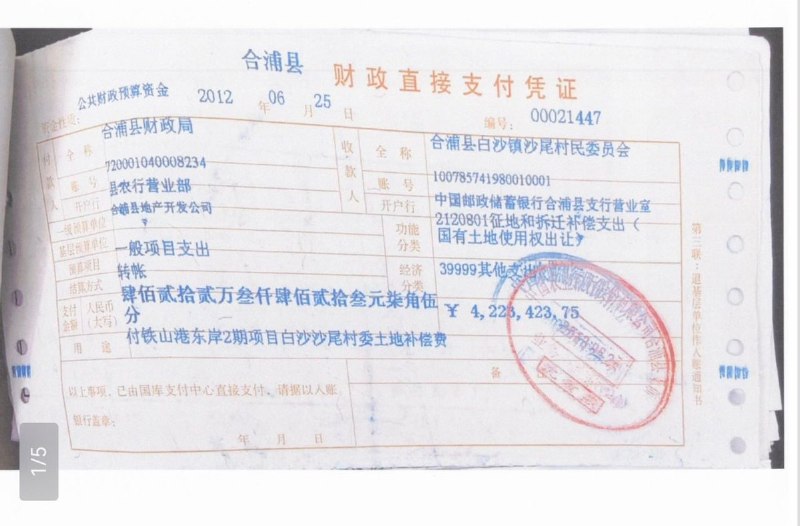 合浦县 财政直接支付凭证
资金性质：公共财政预算资金 2012 年 06 月 25 日 编号：00021447
付款人 全称 合浦县财政局 收款人 全称 合浦县白沙镇沙尾村民委员会
账号 720001040008234 账号 100785741980010001
开户行 县农行营业部 开户行 中国邮政储蓄银行合浦县支行营业室
一级预算单位 合浦县地产开发公司 功能分类 2120801征地和拆迁补偿支出（
基层预算单位 ? 国有土地使用权出让?
预算项目 一般项目支出 经济分类 39999其他支出
结算方式 转帐
支付金额 人民币（大写） 肆佰贰拾贰万叁仟肆佰贰拾叁元柒角伍分 ￥ 4,223,423.75
用途 付铁山港东岸2期项目白沙沙尾村委土地补偿费
以上事项，已由国库支付中心直接支付，请据以入账 备
银行盖章：
年 月 日
第三联：退基层单位作入账通知书
1/5